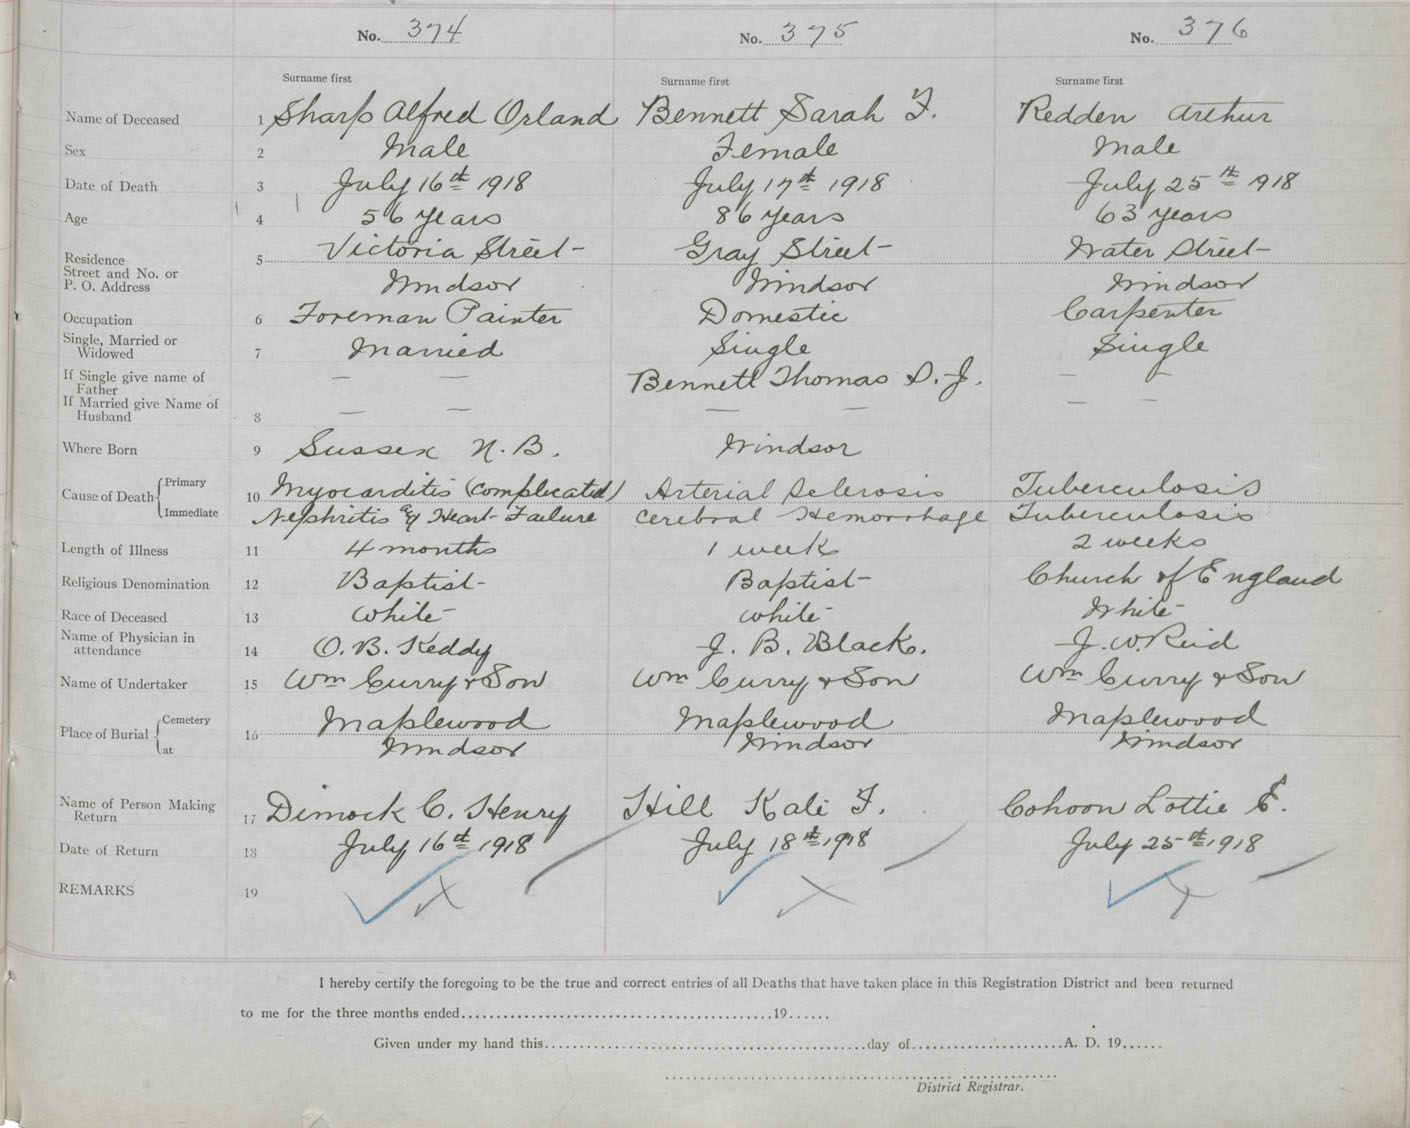 No. 374 No. 375 No. 376
Surname first Surname first Surname first
Name of Deceased 1 Sharp Alfred Orland Bennett Sarah F. Redden Arthur
Sex 2 Male Female Male
Date of Death 3 July 16th 1918 July 17th 1918 July 25th 1918
Age 4 56 years 86 years 63 years
Residence 5 Victoria Street Gray Street Water Street
Street and No. or
P. O. Address Windsor Windsor Windsor
Occupation 6 Foreman Painter Domestic Carpenter
Single, Married or
Widowed 7 Married Single Single
If Single give name of
Father — — Bennett Thomas D. J. — —
If Married give Name of
Husband 8 — — — — — —
Where Born 9 Sussex N.B. Windsor
Cause of Death Primary 10 Myocarditis (complicated) Arterial Sclerosis Tuberculosis
Immediate Nephritis & Heart Failure Cerebral Hemorrhage Tuberculosis
Length of Illness 11 4 months 1 week 2 weeks
Religious Denomination 12 Baptist Baptist Church of England
Race of Deceased 13 White White White
Name of Physician in
attendance 14 O. B. Keddy J. B. Black. J. W. Reid
Name of Undertaker 15 Wm Curry & Son Wm Curry & Son Wm Curry & Son
Place of Burial Cemetery 16 Maplewood Maplewood Maplewood
at Windsor Windsor Windsor
Name of Person Making
Return 17 Dimock C. Henry Hill Kate F. Cohoon Lottie E.
Date of Return 18 July 16th 1918 July 18th 1918 July 25th 1918
REMARKS 19
I hereby certify the foregoing to be the true and correct entries of all Deaths that have taken place in this Registration District and been returned
to me for the three months ended..........19......
Given under my hand this..........day of..........A. D. 19......
District Registrar.